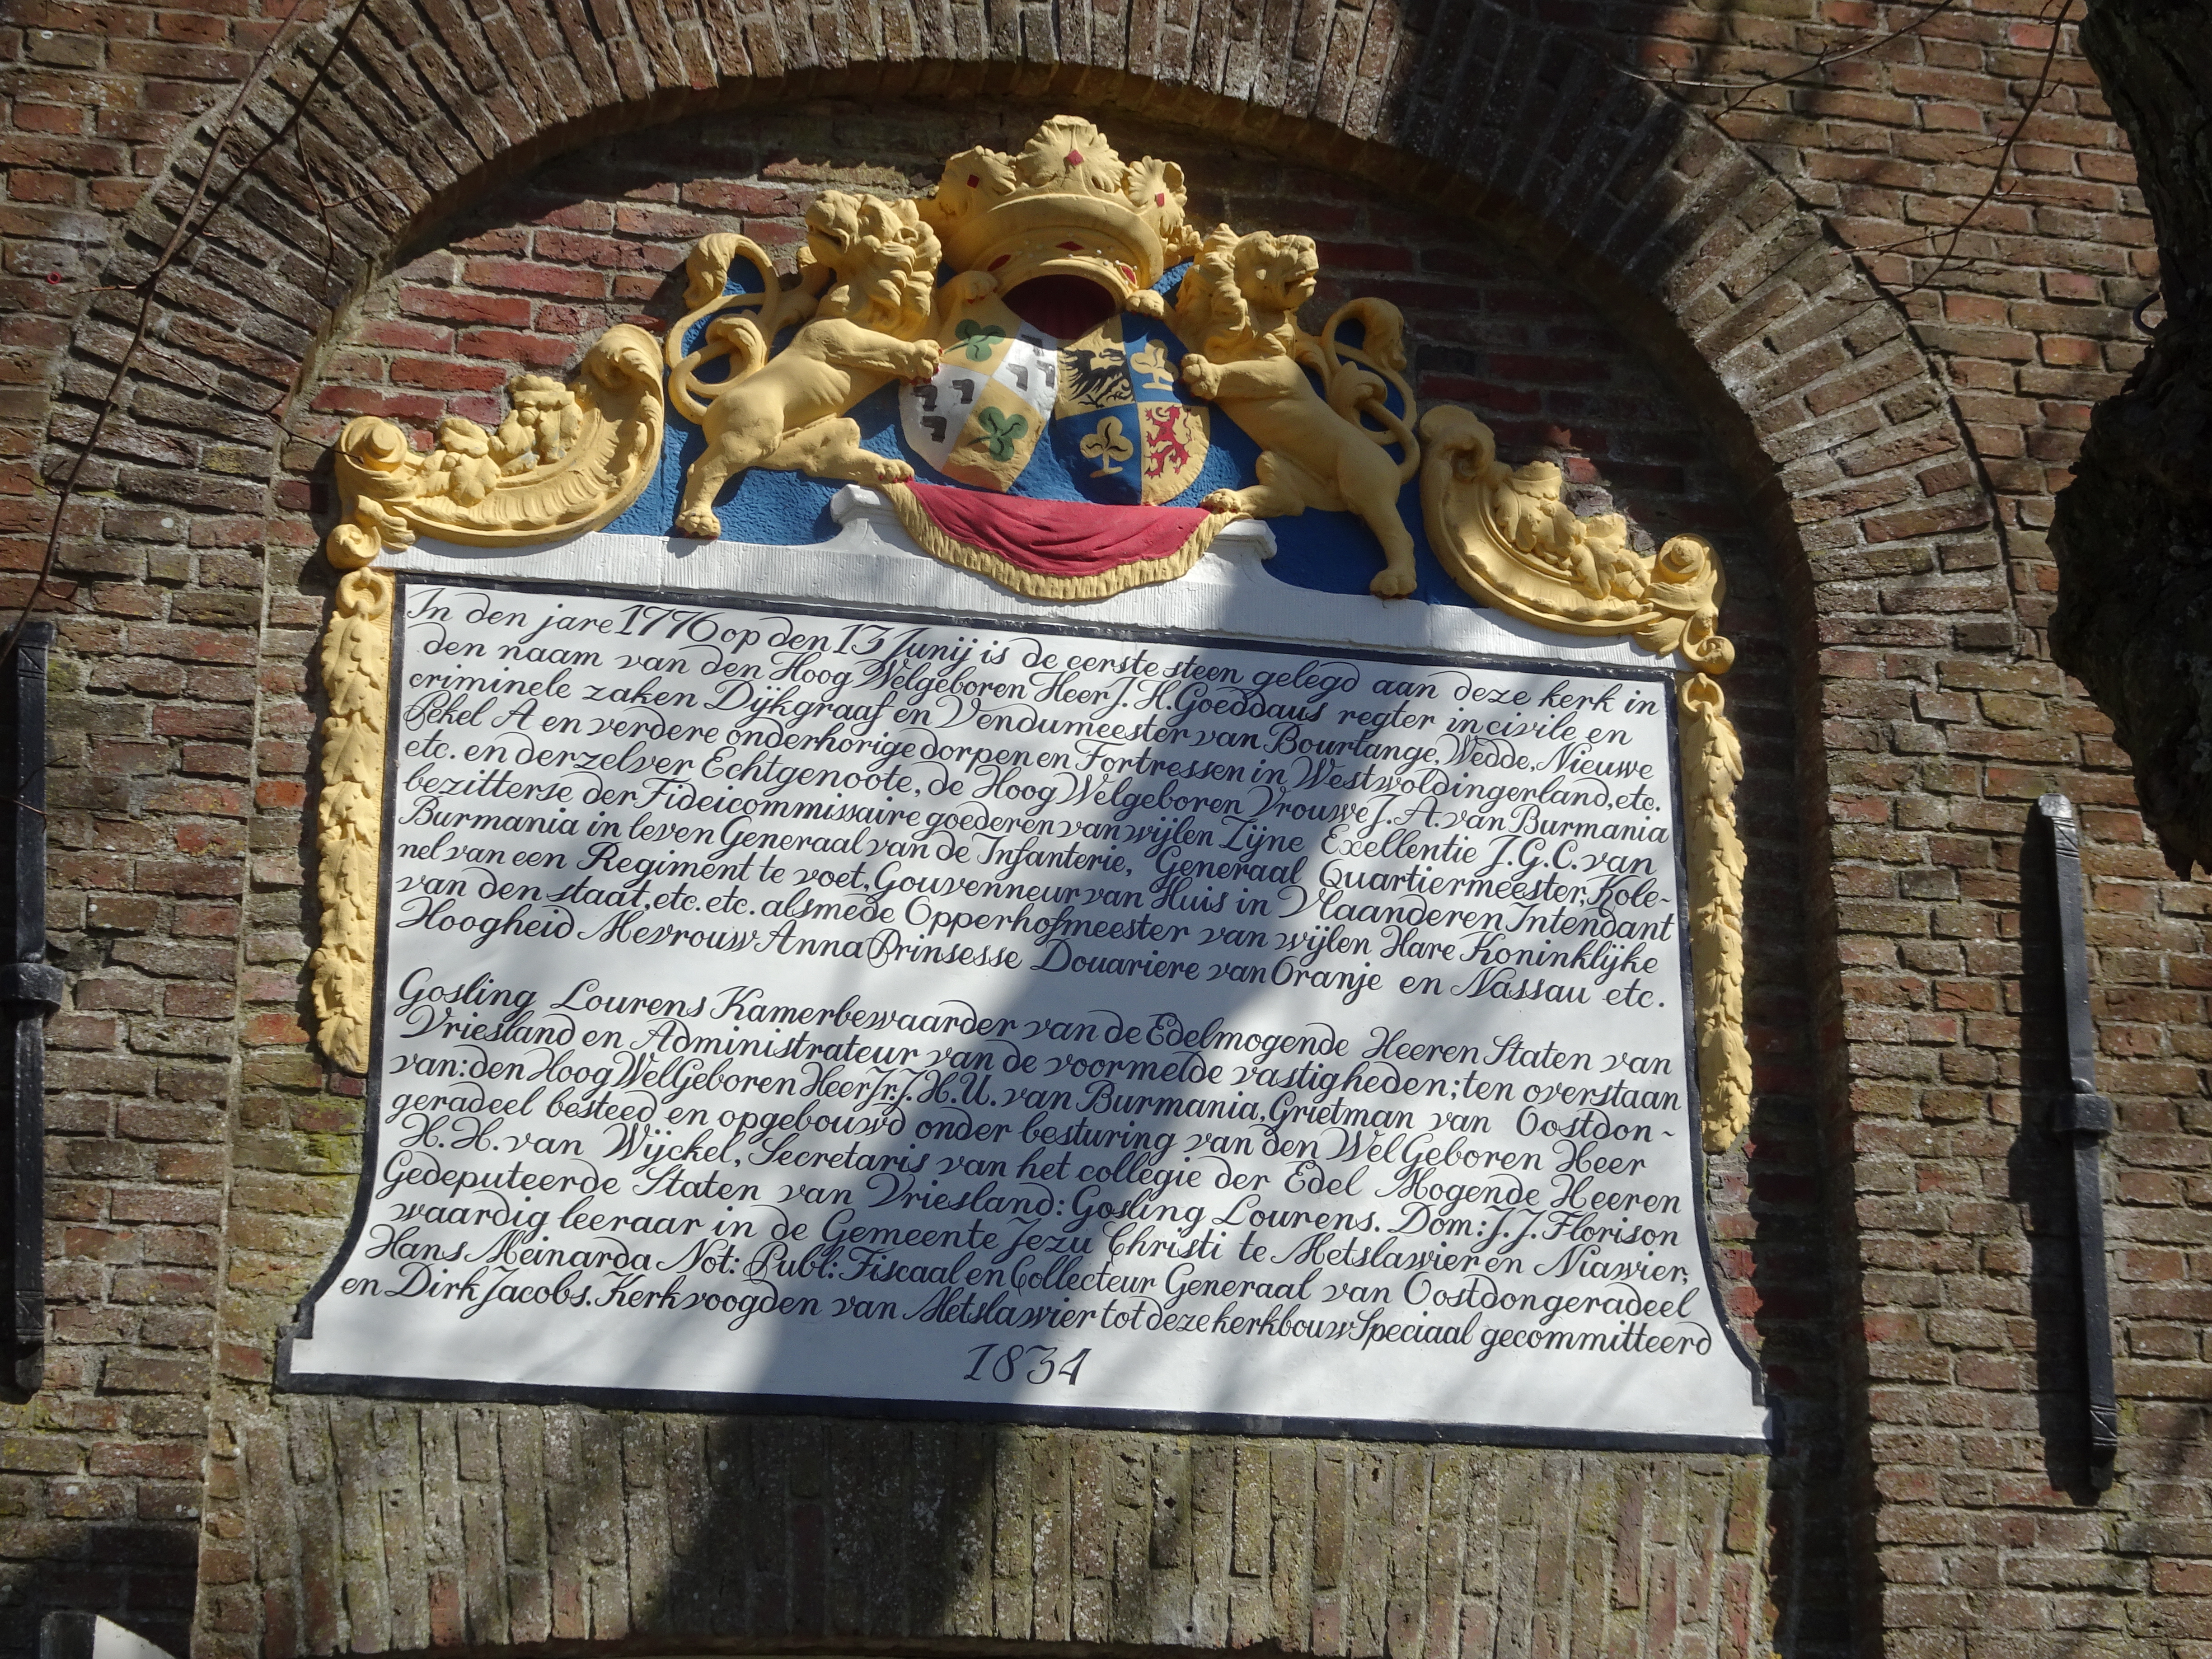 In den jare 1776 op den 13 Junij is de eerste steen gelegd aan deze kerk in
den naam van den Hoog Welgeboren Heer J. H. Goeddaus regter in civile en
criminele zaken Dijkgraaf en Vendumeester van Bourtange, Wedde, Nieuwe
Pekel A en verdere onderhorige dorpen en Fortressen in Westwoldingerland, etc.
etc. en derzelver Echtgenoote, de Hoog Welgeboren Vrouwe J. A. van Burmania
bezitterse der Fideicommissaire goederen van wijlen Zijne Exellentie J. G. C. van
Burmania in leven Generaal van de Infanterie, Generaal Quartiermeester, Kole-
nel van een Regiment te voet, Gouvenneur van Huis in Vlaanderen Intendant
van den staat, etc. etc. alsmede Opperhofmeester van wijlen Hare Koninklijke
Hoogheid Mevrouw Anna Prinsesse Douariere van Oranje en Nassau etc.
Gosling Lourens Kamerbewaarder van de Edelmogende Heeren Staten van
Vriesland en Administrateur van de voormelde vastigheden; ten overstaan
van: den Hoog WelGeboren Heer Jr. J. H. U. van Burmania, Grietman van Oostdon-
geradeel besteed en opgebouwd onder besturing van den Wel Geboren Heer
H. H. van Wijckel, Secretaris van het collegie der Edel Mogende Heeren
Gedeputeerde Staten van Vriesland: Gosling Lourens. Dom: J. J. Florison
waardig leeraar in de Gemeente Jezu Christi te Metslawier en Niawier,
Hans Meinarda Not: Publ: Fiscaal en Collecteur Generaal van Oostdongeradeel
en Dirk Jacobs. Kerkvoogden van Metslawier tot deze kerkbouw Speciaal gecommitteerd
1834